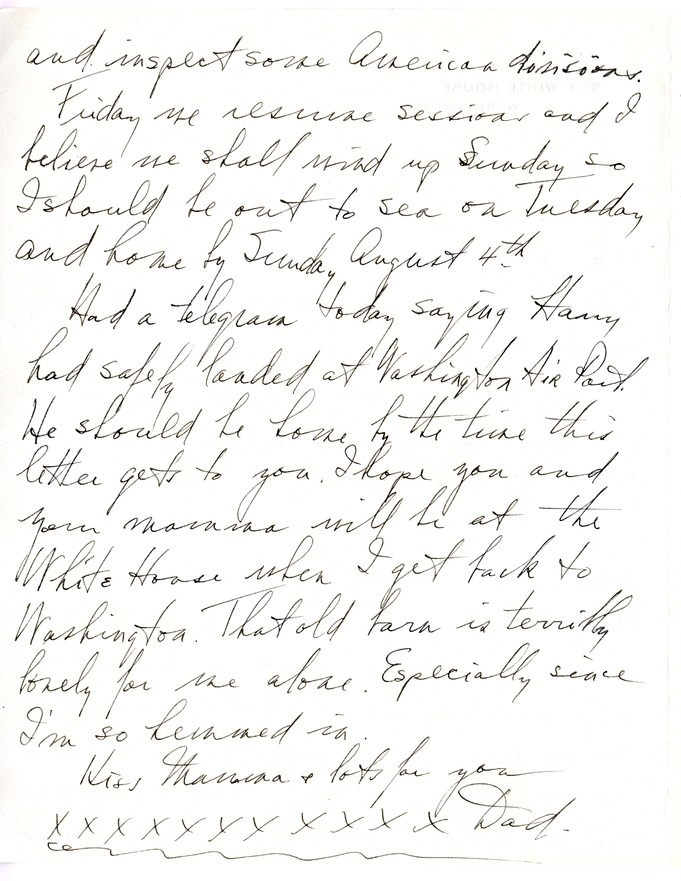 and inspect some American divisions.
Friday we resume sessions and I
believe we shall wind up Sunday so
I should be out to sea on Tuesday
and home by Sunday August 4th
Had a telegram today saying Harry
had safely landed at Washington Air Port.
He should be home by the time this
letter gets to you. I hope you and
your mamma will be at the
White House when I get back to
Washington. That old barn is terribly
lonely for me alone. Especially since
I'm so hemmed in.
Kiss Mamma & lots for you
X X X X X X X X X X X X Dad.